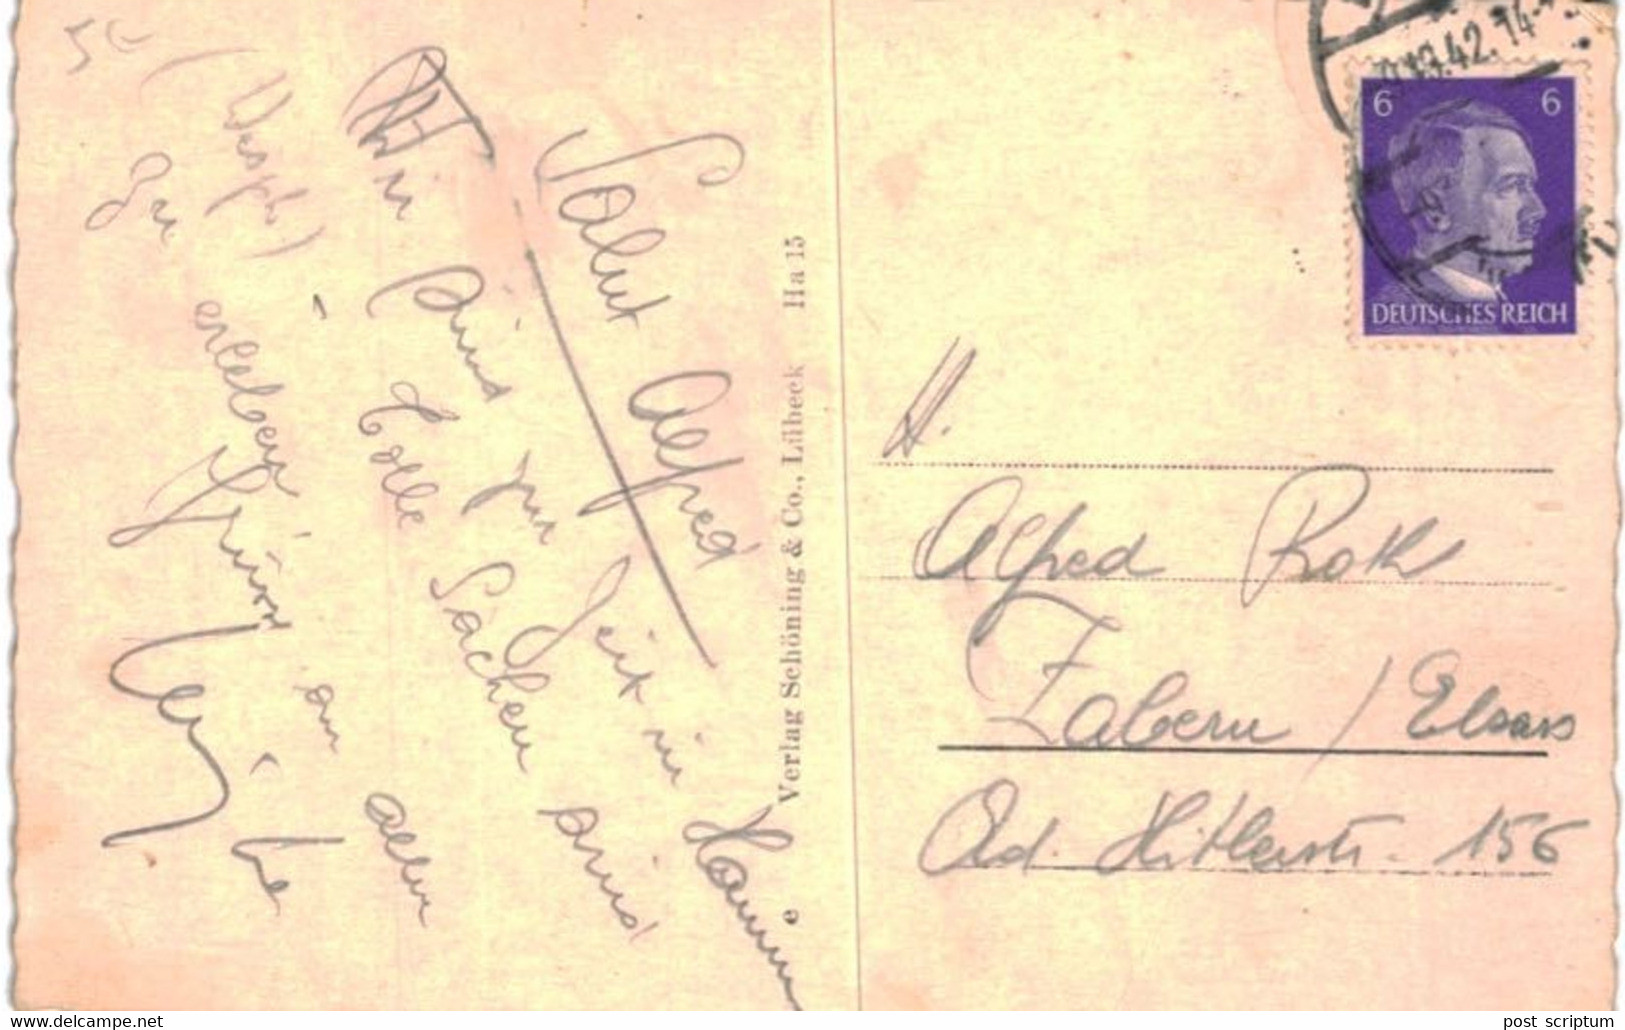 Salut Alfred
Wir sind zur Zeit in Hamm
Tolle Sachen sind
zu erleben
an allen
Verlag Schöning & Co., Lübeck Ha 15
e
9.12.42.14-
6 6
DEUTSCHES REICH
H.
Alfred Roth
Zabern / Elsass
Ad. Hitlerstr. 156
www.delcampe.net
post_scriptum